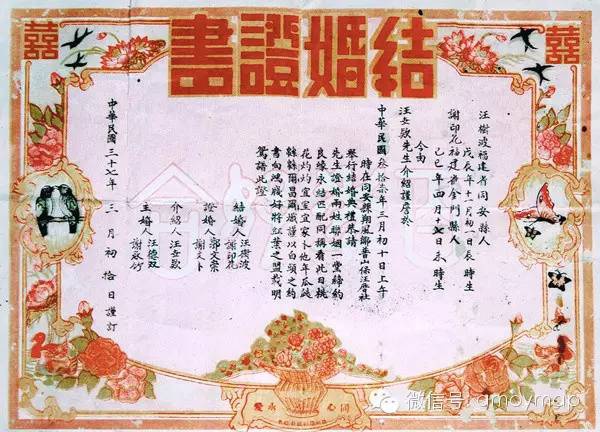 囍 囍
結婚證書
汪樹波福建省同安縣人
戊辰年十一月初一日辰時生
謝印花福建省金門縣人
己巳年四月十七日未時生
今由
汪文欵先生介紹謹詹於
中華民國叁拾柒年三月初十日上午
時在同安縣翔風鄉普山保汪厝社
舉行結婚典禮恭請
先生證婚兩姓聯姻一堂締約
良緣永結匹配同稱看此日桃
花灼灼宜室宜家卜他年瓜瓞
綿綿爾昌爾熾謹以白頭之約
書向鴻牋好將紅葉之盟載明
鴛譜此證
結婚人 汪樹波 謝印花
證婚人 郭文
介紹人 汪文欵 謝文卜
主婚人 汪德双 謝承竹
中華民國三十七年三月初拾日謹訂
同心 永愛
微信号: amoymap